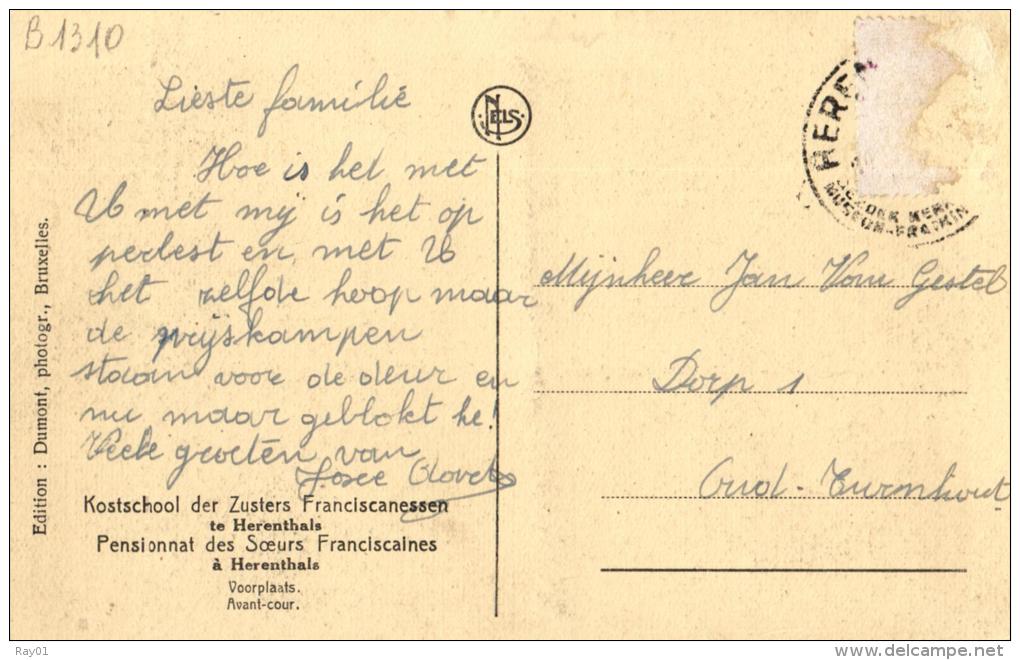 B1310
Lieste familie
Hoe is het met
U met mij is het op
perbest en met U
het zelfde hoop maar
de prijskampen
staan voor de deur en
nu maar geblokt he!
Veele groeten van
Josee
NELS
Mijnheer Jan Van Gestel
Dorp 1
Oud-Turnhout
HEREN
BEZOEK HER
MUSEUM-FRAIKIN
Edition : Dumont, photogr., Bruxelles.
Kostschool der Zusters Franciscanessen
te Herenthals
Pensionnat des Sœurs Franciscaines
à Herenthals
Voorplaats.
Avant-cour.
Ray01
http://www.delcampe.net